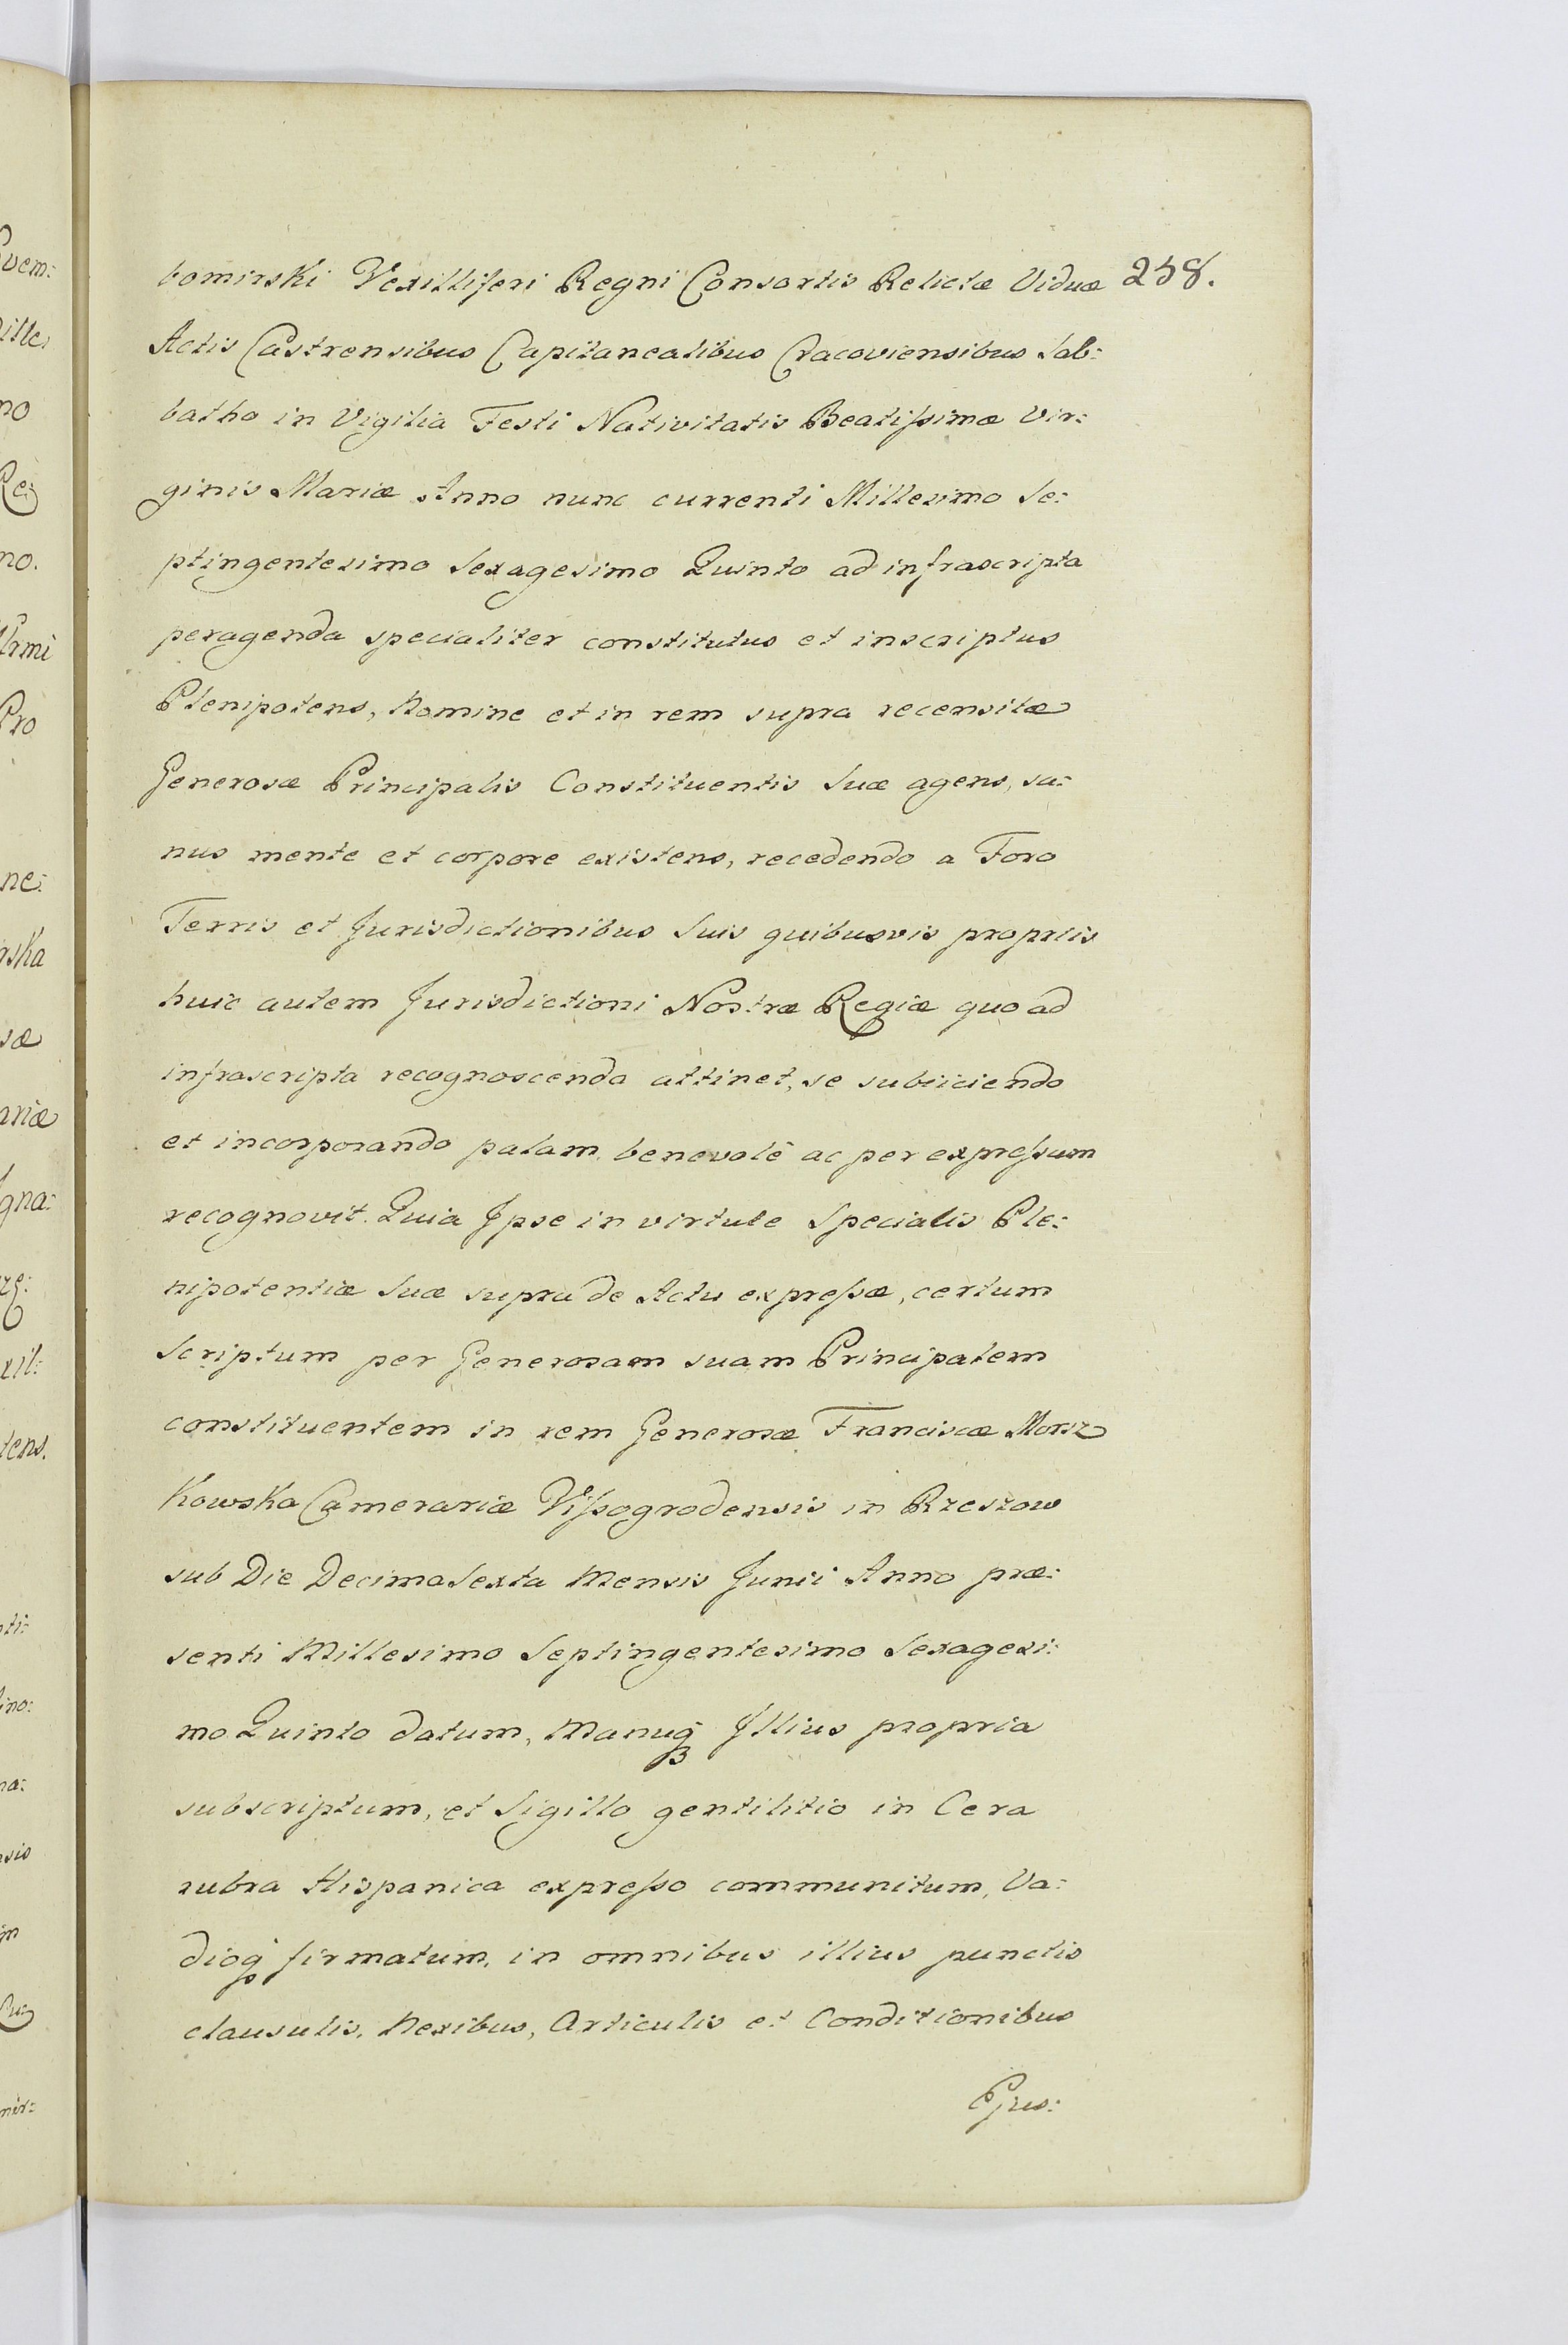 bomirski Vexilliferi Regni Consortis Relictæ Viduæ 258.
Actis Castrensibus Capitanealibus Cracoviensibus Sab:
batho in Vigilia Festi Nativitatis Beatißimæ Vir:
ginis Mariæ Anno nunc currenti Millesimo Se:
ptingentesimo Sexagesimo Quinto ad infrascripta
peragenda specialiter constitutus et inscriptus
Plenipotens, Nomine et in rem supra recensitæ
Generosæ Principalis Constituentis Suæ agens, sa:
nus mente et corpore existens, recedendo a Foro
Terris et Jurisdictionibus Suis quibusvis propriis
huic autem Jurisdictioni Nostræ Regiæ quo ad
infrascripta recognoscenda attinet, se subiiciendo
et incorporando palam, benevolè ac per expreßum
recognovit. Quia Ipse in virtute Specialis Ple:
nipotentiæ Suæ supra de Actu expreßæ, certum
Scriptum per Generosam suam Principalem
constituentem in rem Generosæ Franciscæ Morsz
Kowska Camerariæ Vißogrodensis in Rzeszow
sub Die Decima Sexta Mensis Junii Anno præ:
senti Millesimo Septingentesimo Sexagesi:
mo Quinto datum, Manuq3 Illius propria
subscriptum, et Sigillo gentilitio in Cera
rubra Hispanica expreßo communitum, Va:
dioq3 firmatum, in omnibus illius punctis
clausulis, Nexibus, Articulis et Conditionibus
Ejus: